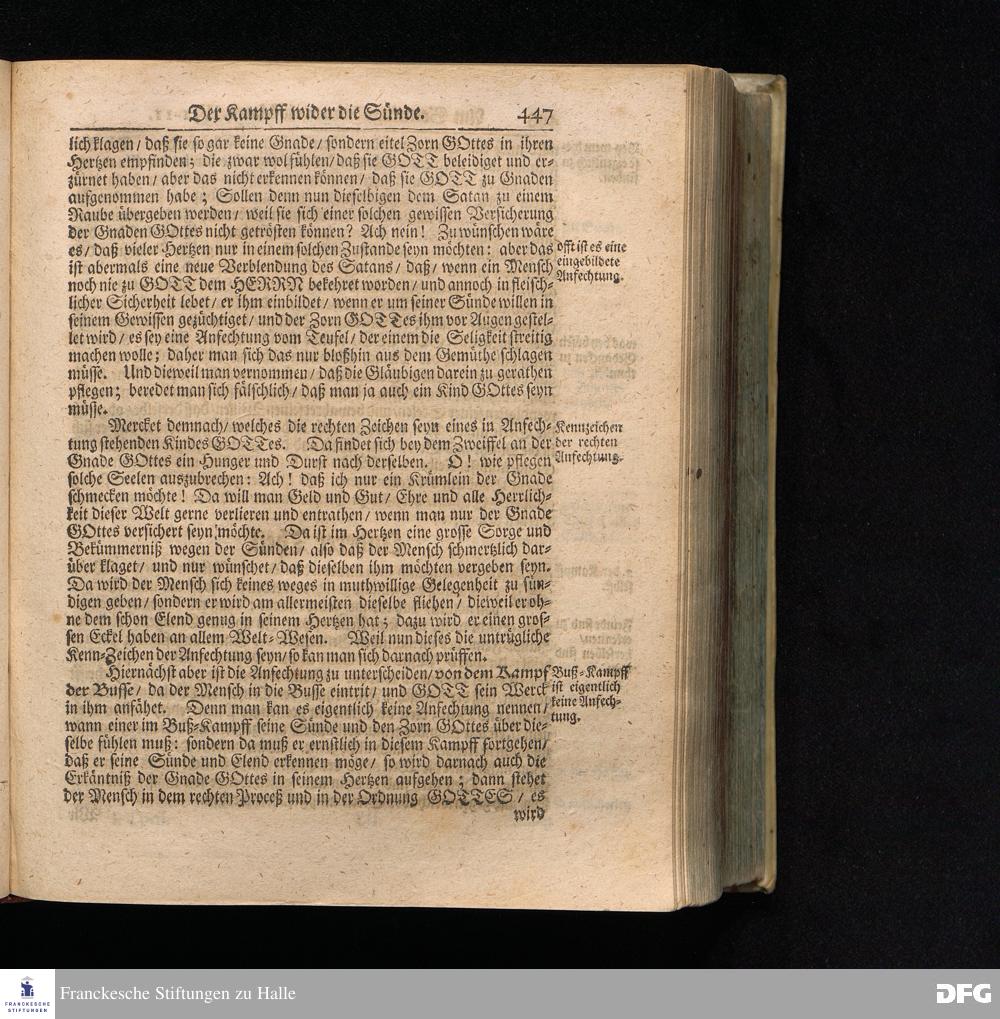 Der Kampff wider die Sünde. 447
lich klagen / daß sie so gar keine Gnade / sondern eitel Zorn GOttes in ihren
Hertzen empfinden; die zwar wol fühlen / daß sie GOTT beleidiget und er-
zürnet haben / aber das nicht erkennen können / daß sie GOTT zu Gnaden
aufgenommen habe; Sollen denn nun dieselbigen dem Satan zu einem
Raube übergeben werden / weil sie sich einer solchen gewissen Versicherung
der Gnaden GOttes nicht getrösten können? Ach nein! Zu wünschen wäre
es / daß vieler Hertzen nur in einem solchen Zustande seyn möchten: aber das
ist abermals eine neue Verblendung des Satans / daß / wenn ein Mensch
noch nie zu GOTT dem HERRN bekehret worden / und annoch in fleisch-
licher Sicherheit lebet / er ihm einbildet / wenn er um seiner Sünde willen in
seinem Gewissen gezüchtiget / und der Zorn GOTTes ihm vor Augen gestel-
let wird / es sey eine Anfechtung vom Teufel / der einem die Seligkeit streitig
machen wolle; daher man sich das nur bloßhin aus dem Gemüthe schlagen
müsse. Und dieweil man vernommen / daß die Gläubigen darein zu gerathen
pflegen; beredet man sich fälschlich / daß man ja auch ein Kind GOttes seyn
müsse.
offt ist es eine
eingebildete
Anfechtung.
Mercket demnach / welches die rechten Zeichen seyn eines in Anfech-
tung stehenden Kindes GOTTes. Da findet sich bey dem Zweiffel an der
Gnade GOttes ein Hunger und Durst nach derselben. O! wie pflegen
solche Seelen auszubrechen: Ach! daß ich nur ein Krümlein der Gnade
schmecken möchte! Da will man Geld und Gut / Ehre und alle Herrlich-
keit dieser Welt gerne verlieren und entrathen / wenn man nur der Gnade
GOttes versichert seyn möchte. Da ist im Hertzen eine grosse Sorge und
Bekümmerniß wegen der Sünden / also daß der Mensch schmertzlich dar-
über klaget / und nur wünschet / daß dieselben ihm möchten vergeben seyn.
Da wird der Mensch sich keines weges in muthwillige Gelegenheit zu sün-
digen geben / sondern er wird am allermeisten dieselbe fliehen / dieweil er oh-
ne dem schon Elend genug in seinem Hertzen hat; dazu wird er einen gros-
sen Eckel haben an allem Welt-Wesen. Weil nun dieses die untrügliche
Kenn-Zeichen der Anfechtung seyn / so kan man sich darnach prüffen.
Kennzeichen
der rechten
Anfechtung.
Hiernächst aber ist die Anfechtung zu unterscheiden / von dem Kampf
der Busse / da der Mensch in die Busse eintrit / und GOTT sein Werck
in ihm anfähet. Denn man kan es eigentlich keine Anfechtung nennen /
wann einer im Buß-Kampff seine Sünde und den Zorn GOttes über die-
selbe fühlen muß: sondern da muß er ernstlich in diesem Kampff fortgehen /
daß er seine Sünde und Elend erkennen möge / so wird darnach auch die
Erkäntniß der Gnade GOttes in seinem Hertzen aufgehen; dann stehet
der Mensch in dem rechten Proceß und in der Ordnung GOTTES / es
wird
Buß-Kampff
ist eigentlich
keine Anfech-
tung.
FRANCKESCHE
STIFTUNGEN
Franckesche Stiftungen zu Halle
DFG